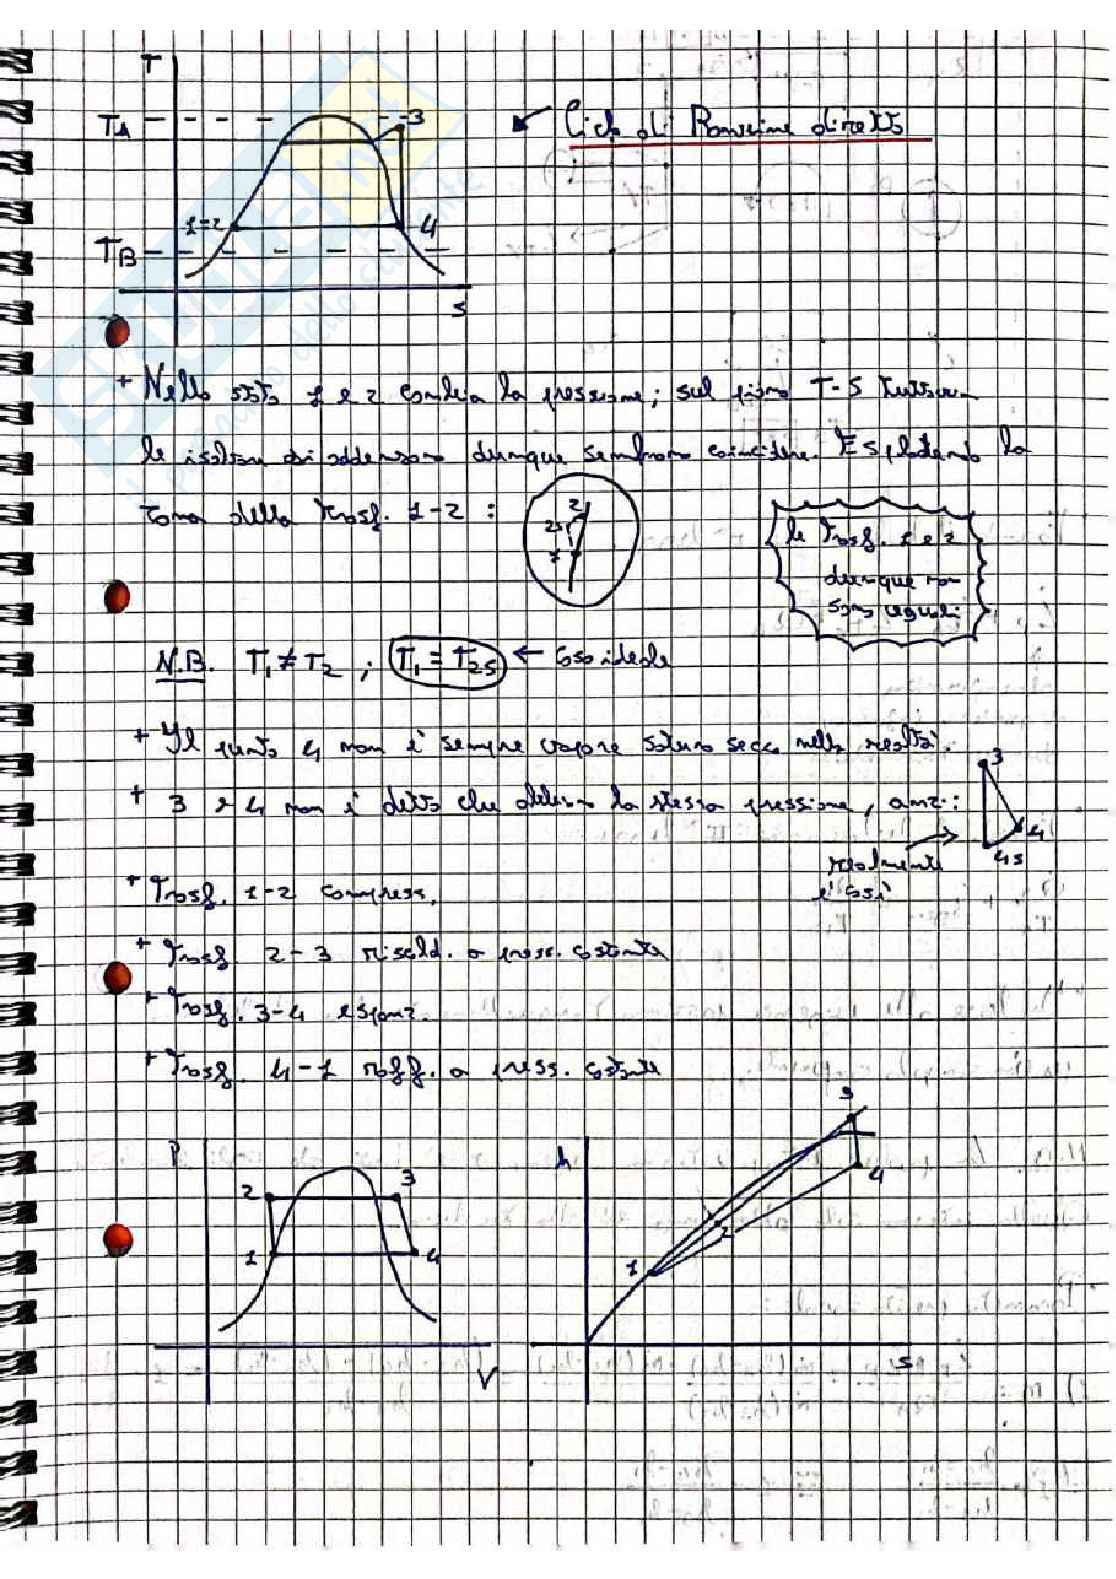 T
TA
3
Ciclo di Rankine diretto
1=2
4
TB
s
+ Nello stato 1 e 2 cambia la pressione; sul piano T-S tuttavia
le isobare si addensano dunque sembrano coincidere. Esplodendo la
zona della trasf. 1-2 :
2
2s
1
le Trasf. 1 e 2
dunque non
sono uguali
N.B. T1 ≠ T2 ; T1 = T2s ← caso ideale
+ Il punto 4 non è sempre vapore saturo secco nella realtà.
+ 3 e 4 non è detto che abbiano la stessa pressione, anzi:
3
4
4s
realmente
è così
+ Trasf. 1-2 compress.
+ Trasf. 2-3 riscald. a press. costante
+ Trasf. 3-4 espanz.
+ Trasf. 4-1 raff. a press. costante
P
2
3
1
4
V
h
3
4
2
1
s